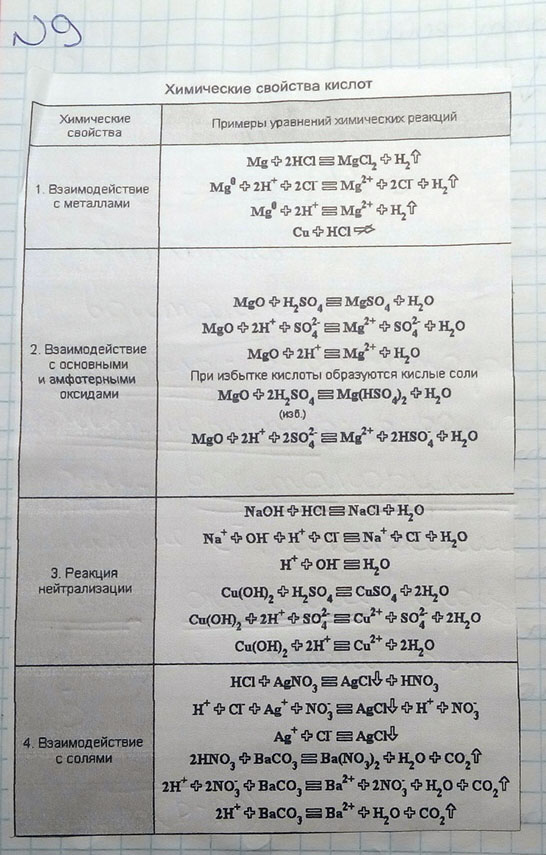 №9
Химические свойства кислот
Химические свойства
Примеры уравнений химических реакций
1. Взаимодействие с металлами
Mg + 2HCl = MgCl₂ + H₂⇑
Mg⁰ + 2H⁺ + 2Cl⁻ = Mg²⁺ + 2Cl⁻ + H₂⇑
Mg⁰ + 2H⁺ = Mg²⁺ + H₂⇑
Cu + HCl ≠>
2. Взаимодействие с основными и амфотерными оксидами
MgO + H₂SO₄ = MgSO₄ + H₂O
MgO + 2H⁺ + SO₄²⁻ = Mg²⁺ + SO₄²⁻ + H₂O
MgO + 2H⁺ = Mg²⁺ + H₂O
При избытке кислоты образуются кислые соли
MgO + 2H₂SO₄ = Mg(HSO₄)₂ + H₂O
(изб.)
MgO + 2H⁺ + 2SO₄²⁻ = Mg²⁺ + 2HSO₄⁻ + H₂O
3. Реакция нейтрализации
NaOH + HCl = NaCl + H₂O
Na⁺ + OH⁻ + H⁺ + Cl⁻ = Na⁺ + Cl⁻ + H₂O
H⁺ + OH⁻ = H₂O
Cu(OH)₂ + H₂SO₄ = CuSO₄ + 2H₂O
Cu(OH)₂ + 2H⁺ + SO₄²⁻ = Cu²⁺ + SO₄²⁻ + 2H₂O
Cu(OH)₂ + 2H⁺ = Cu²⁺ + 2H₂O
4. Взаимодействие с солями
HCl + AgNO₃ = AgCl⇓ + HNO₃
H⁺ + Cl⁻ + Ag⁺ + NO₃⁻ = AgCl⇓ + H⁺ + NO₃⁻
Ag⁺ + Cl⁻ = AgCl⇓
2HNO₃ + BaCO₃ = Ba(NO₃)₂ + H₂O + CO₂⇑
2H⁺ + 2NO₃⁻ + BaCO₃ = Ba²⁺ + 2NO₃⁻ + H₂O + CO₂⇑
2H⁺ + BaCO₃ = Ba²⁺ + H₂O + CO₂⇑